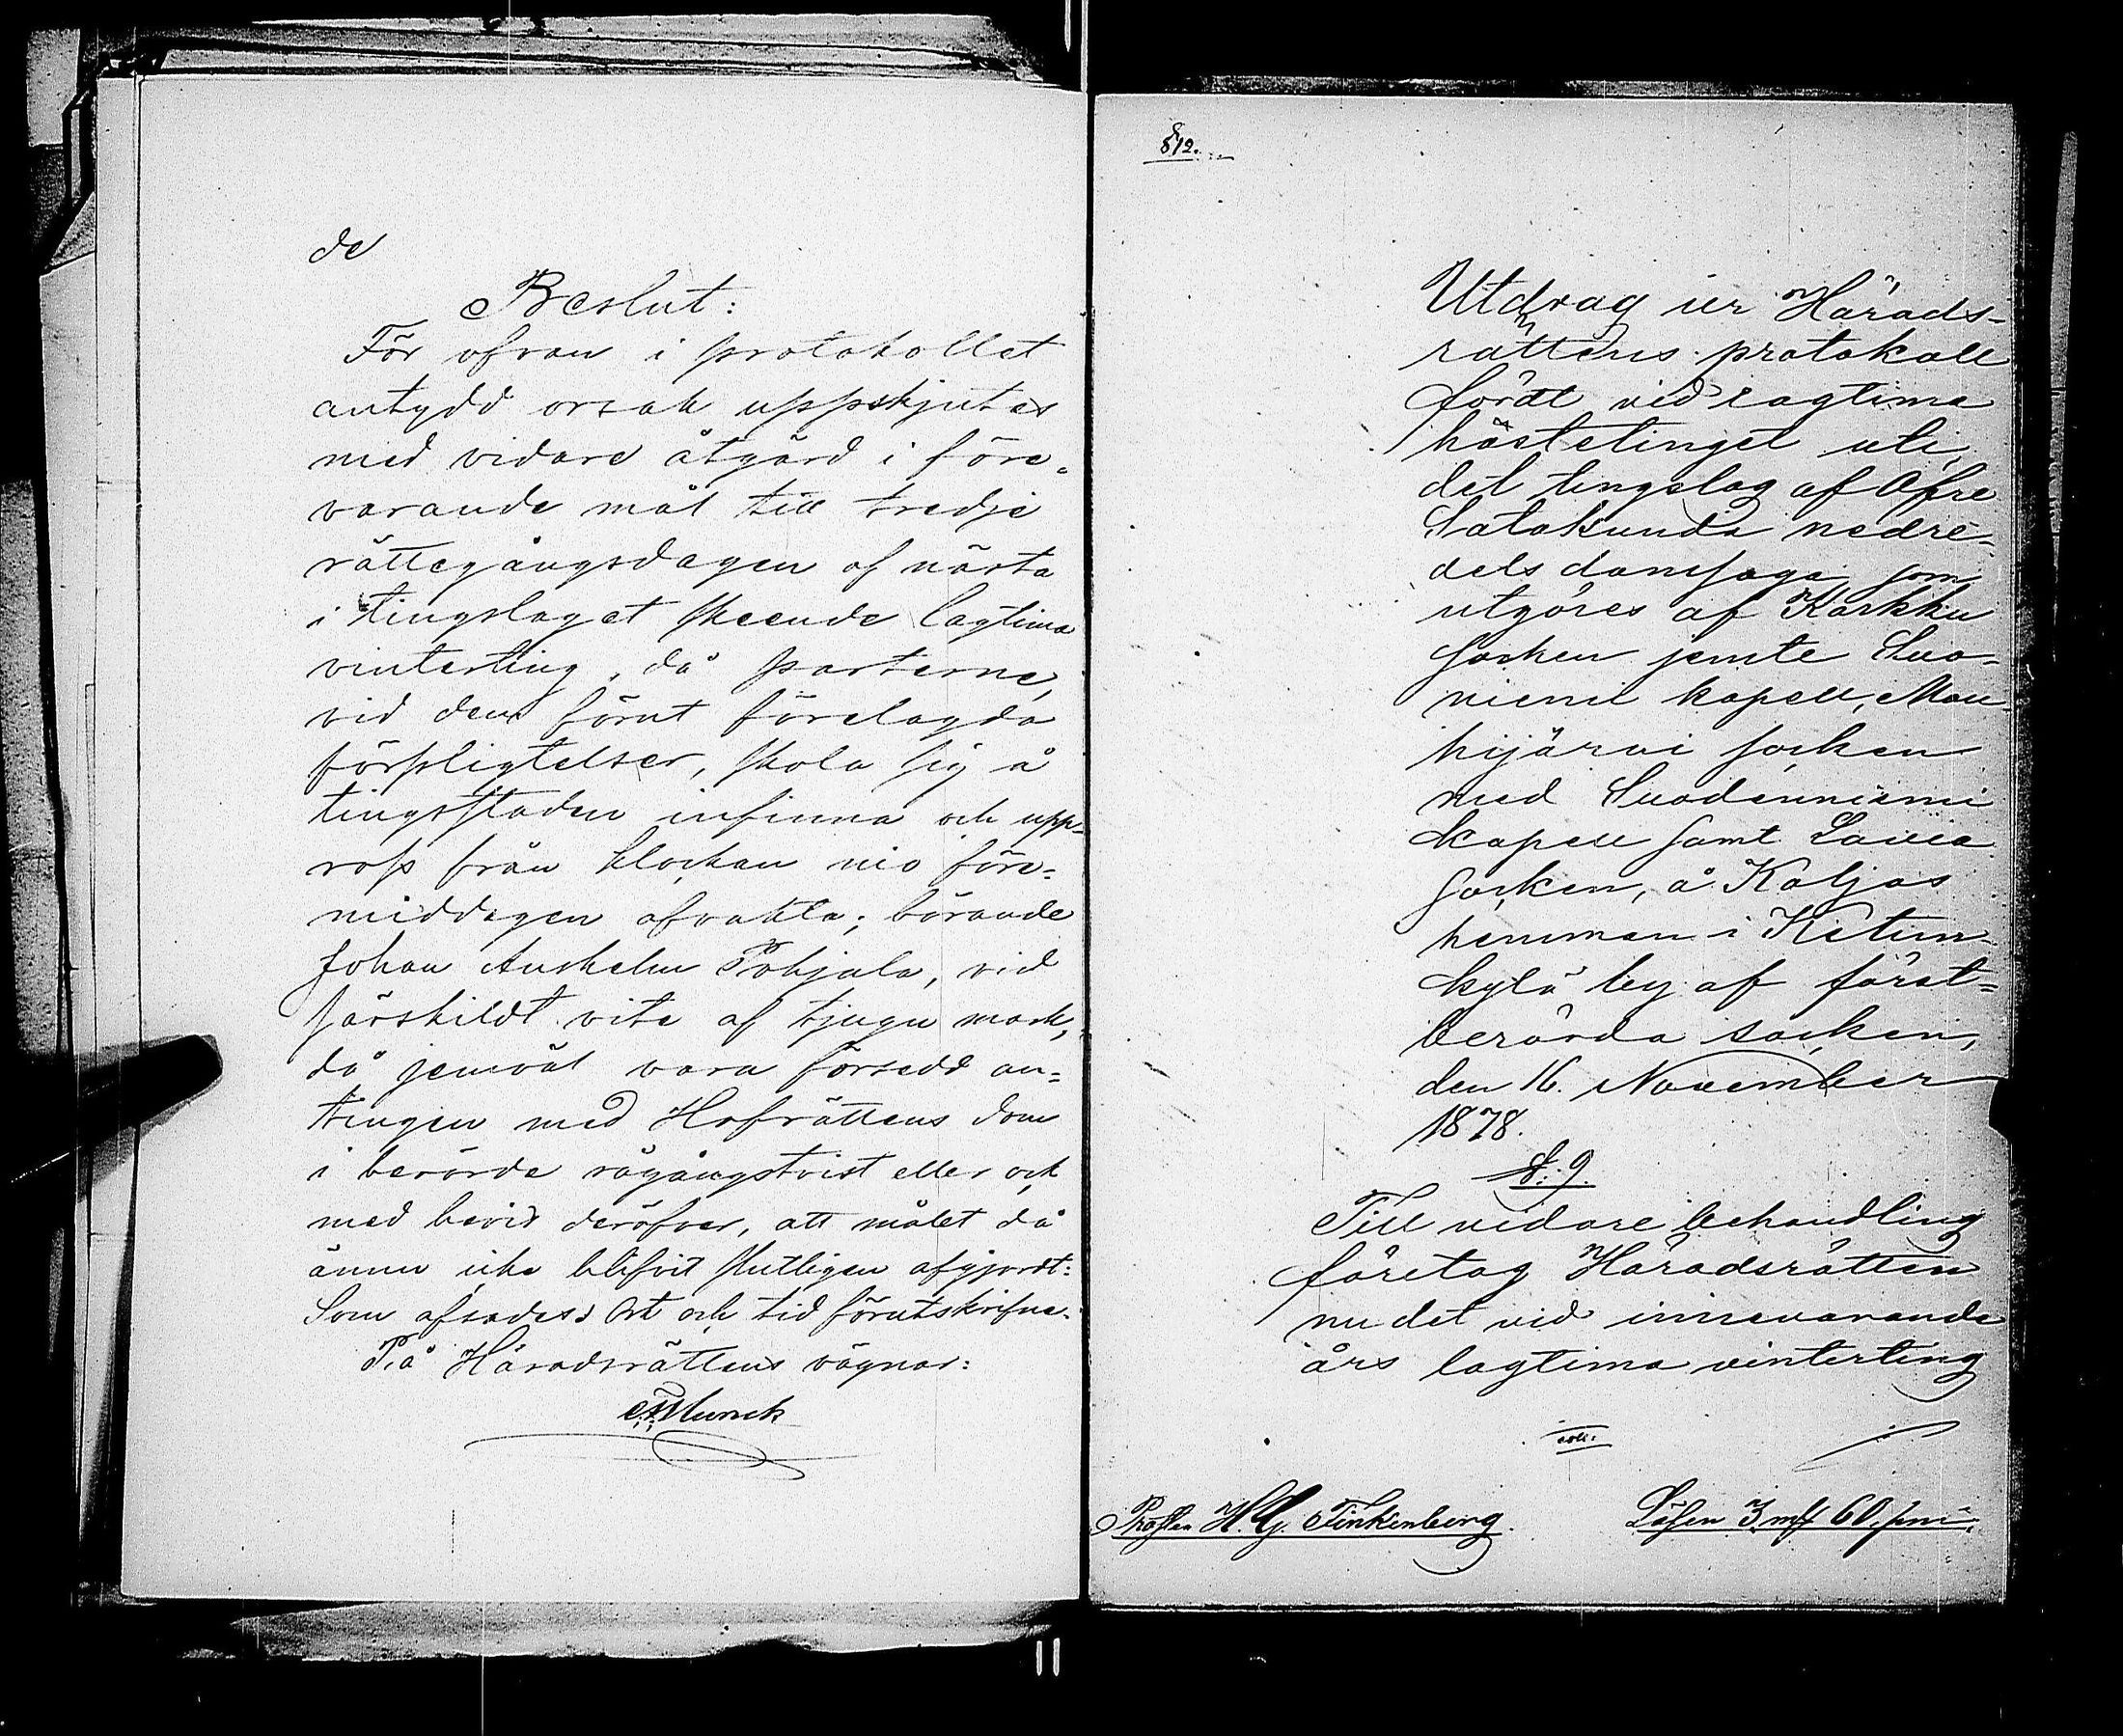 de
Beslut:
För ofvan i protokollet
antydd orsak uppskjutes
med vidare åtgärd i före-
varande mål till tredje
rättegångsdagen af nästa
i tingslaget skeende lagtima
vinterting, då parterne,
vid dem förut förelagda
förpligtelser, skola sig å
tingsstaden infinna och upp-
rop från klockan nio före-
middagen afvakta; börande
Johan Anshelm Pohjala, vid
särskildt vite af tjugu mark,
då jemväl vara försedd an-
tingen med Hofrättens dom
i berörde rågångstvist eller ock
med bevis deröfver, att målet då
ännu icke blifvit slutligen afgjordt:
Som afsades; Ort och tid förutskrifne.
På Häradsrättens vägnar:
Munck
812.
Utdrag ur Härads-
rättens protokoll
fördt vid lagtima
höstetinget uti
det tingslag af Öfre
Satakunda nedre-
dels domsaga som
utgöres af Karkku
socken jemte Suo-
niemi kapell, Mou-
hijärvi socken
med Suodenniemi
kapell samt Lavia
socken, å Kaljas
hemman i Ketun-
kylä by af först-
berörda socken,
den 16. November
1878.
§. 9.
Till vidare behandling
företog Häradsrätten
nu det vid innevarande
års lagtima vinterting
Prosten H. G. Finkenberg. Lösen 3 mk 60 pni.